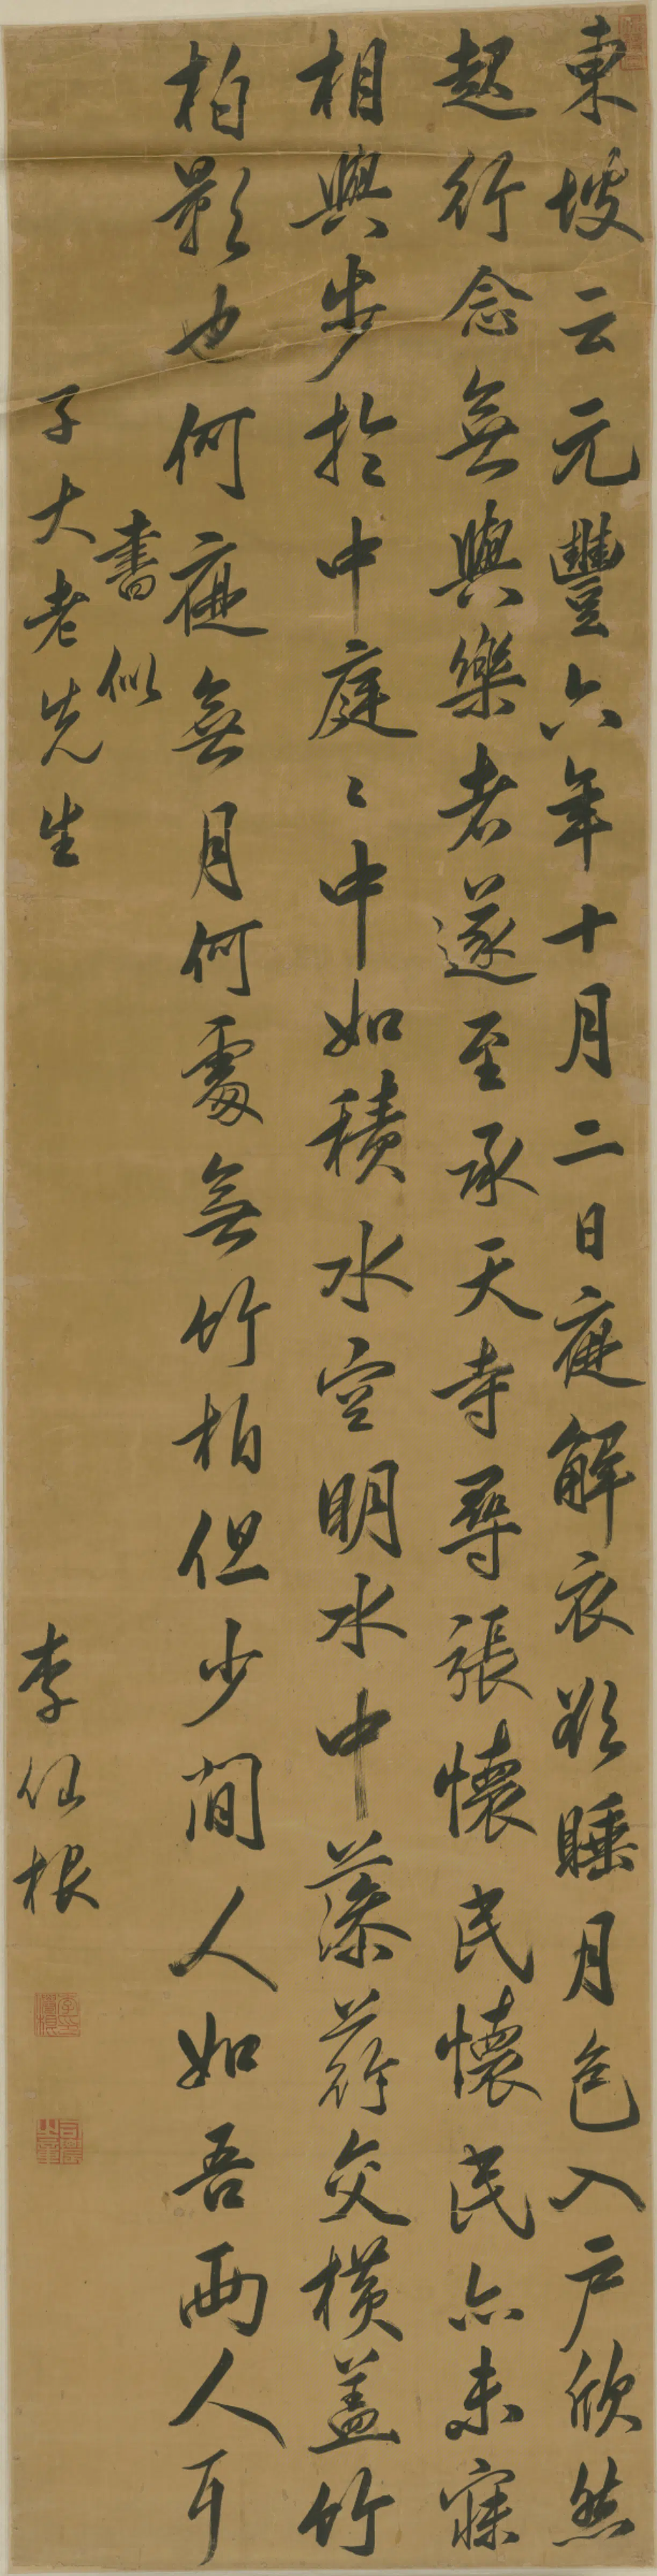 東坡云元豐六年十月二日夜解衣欲睡月色入户欣然
起行念無與樂者遂至承天寺尋張懷民懷民亦未寐
相與步於中庭〻中如積水空明水中藻荇交橫盖竹
柏影也何夜無月何處無竹柏但少閒人如吾兩人耳
書似
子大老先生
李仙根